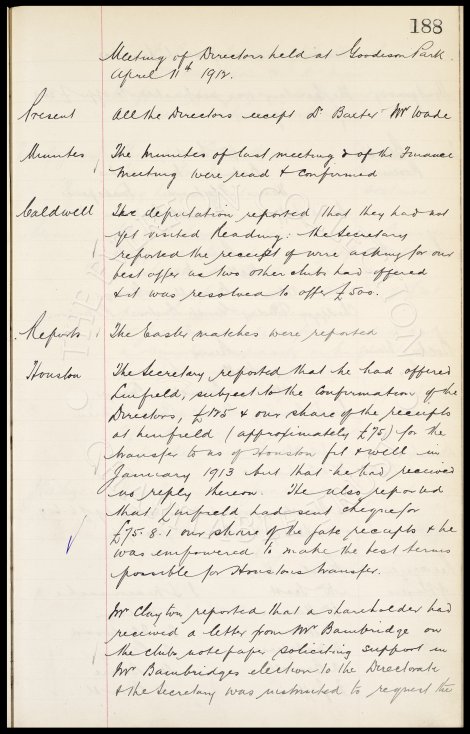 188
Meeting of Directors held at Goodison Park
April 11th 1912.
Present All the Directors except Dr Baxter Mr Wade
Minutes The Minutes of last meeting & of the Finance
Meeting were read & confirmed
Caldwell The deputation reported that they had not
yet visited Reading: the Secretary
reported the receipt of wire asking for our
best offer as two other clubs had offered
& it was resolved to offer £500.
Reports The Easter matches were reported
Houston The Secretary reported that he had offered
Linfield, subject to the confirmation of the
Directors, £175 & our share of the receipts
at Linfield (approximately £75) for the
transfer to us of Houston fit & well in
January 1913 but that he had received
no reply thereon. He also reported
that Linfield had sent cheque for
£75.8.1 our share of the gate receipts & he
was empowered to make the best terms
possible for Houstons transfer.
Mr Clayton reported that a shareholder had
received a letter from Mr Bainbridge on
the clubs notepaper soliciting support in
Mr Bainbridges election to the Directorate
& the Secretary was instructed to request the